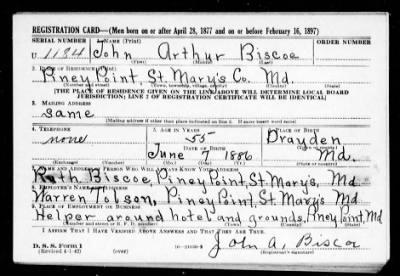 REGISTRATION CARD—(Men born on or after April 28, 1877 and on or before February 16, 1897)
SERIAL NUMBER 1. NAME (Print) ORDER NUMBER
U 1184 John Arthur Biscoe
(First) (Middle) (Last)
2. PLACE OF RESIDENCE (Print)
Piney Point, St. Mary's Co. Md.
(Number and street) (Town, township, village, or city) (County) (State)
[THE PLACE OF RESIDENCE GIVEN ON THE LINE ABOVE WILL DETERMINE LOCAL BOARD
JURISDICTION; LINE 2 OF REGISTRATION CERTIFICATE WILL BE IDENTICAL]
3. MAILING ADDRESS
same
[Mailing address if other than place indicated on line 2. If same insert word same]
4. TELEPHONE 5. AGE IN YEARS 6. PLACE OF BIRTH
none 55 Drayden
DATE OF BIRTH (Town or county)
June 7 1886 Md.
(Exchange) (Number) (Mo.) (Day) (Yr.) (State or country)
7. NAME AND ADDRESS OF PERSON WHO WILL ALWAYS KNOW YOUR ADDRESS
Biscoe, Piney Point, St. Mary's, Md
8. EMPLOYER'S NAME AND ADDRESS
Warren Tolson, Piney Point, St. Mary's Md
9. PLACE OF EMPLOYMENT OR BUSINESS
Helper around hotel and grounds, Piney Point, Md
(Number and street or R. F. D. number) (Town) (County) (State)
I AFFIRM THAT I HAVE VERIFIED ABOVE ANSWERS AND THAT THEY ARE TRUE.
D. S. S. Form 1
(Revised 4-1-42) (over)
John A, Biscoe